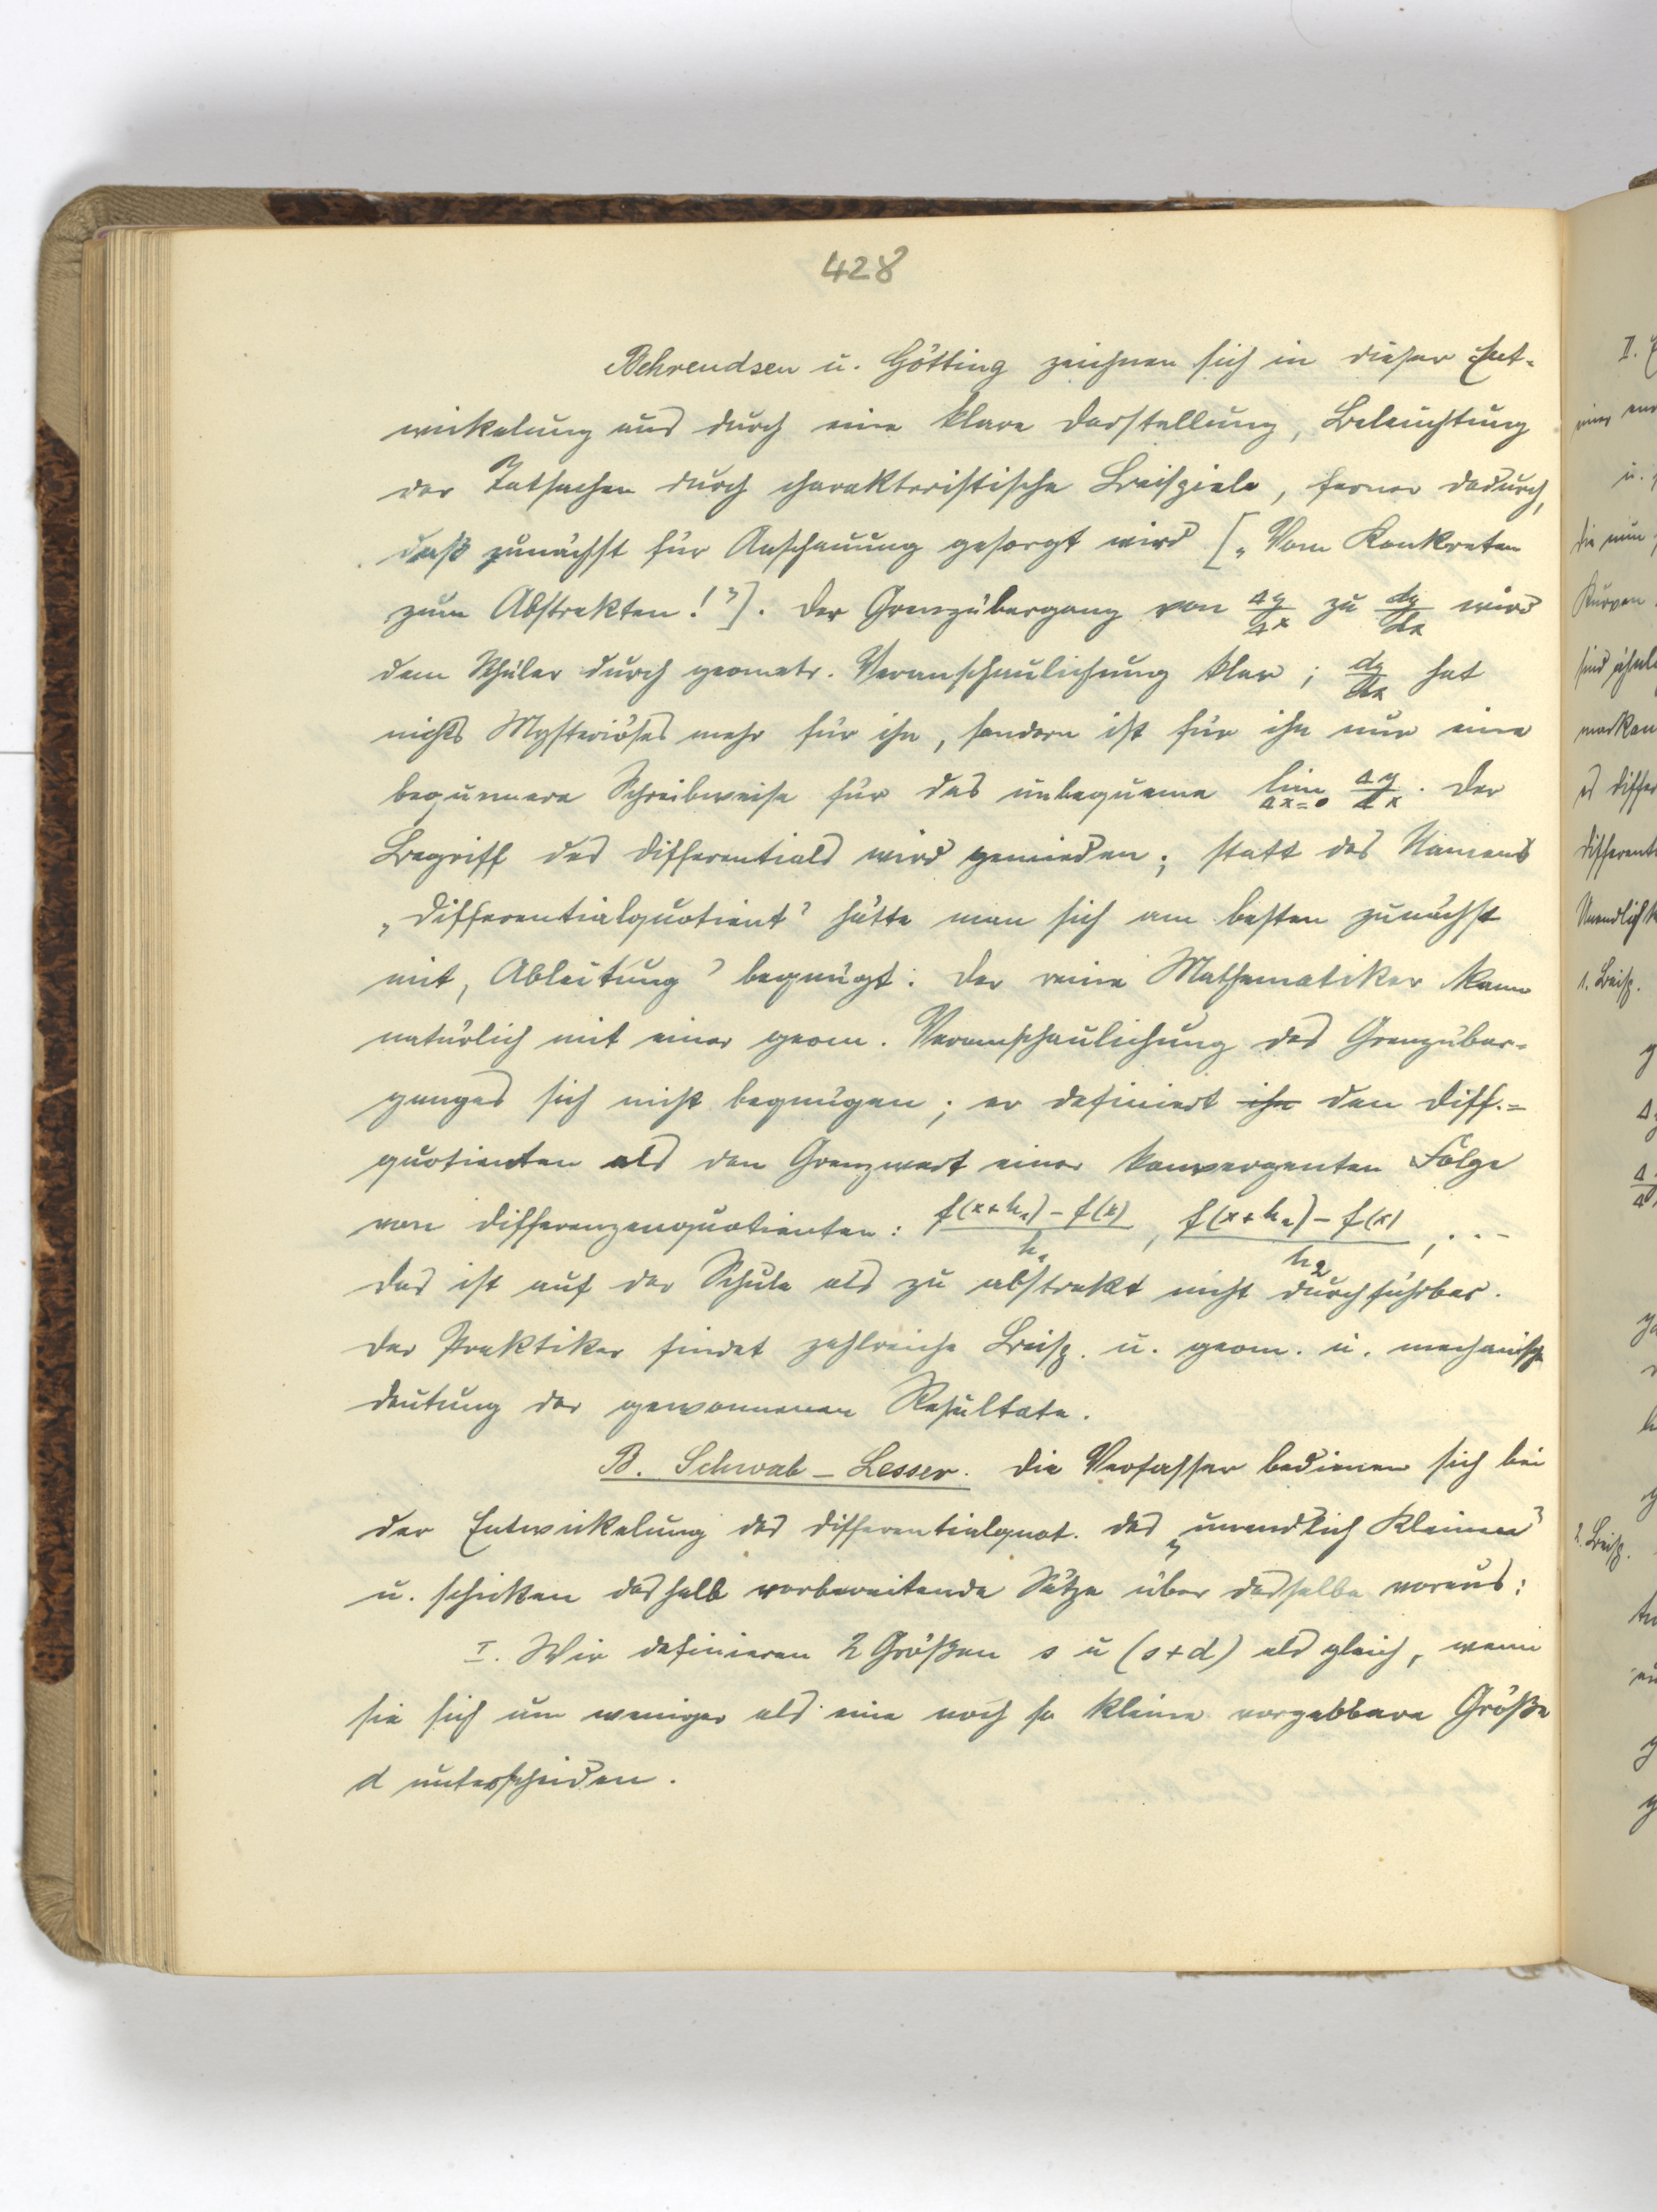 428
Behrendsen u. Götting zeichnen sich in dieser Ent-
wickelung aus durch eine klare Darstellung, Beleuchtung
der Tatsachen durch charakteristische Beispiele, ferner dadurch,
daß zunächst für Anschauung gesorgt wird [„Vom Konkreten
zum Abstrakten!"]. Der Grenzübergang von Δy/Δx zu dy/dx wird
dem Schüler durch geometr. Veranschaulichung klar; dy/dx hat
nichts Mysteriöses mehr für ihn, sondern ist für ihn nur eine
bequemere Schreibweise für das unbequeme lim Δx=0 Δy/Δx. Der
Begriff des Differentials wird gemieden; statt des Namens
„Differentialquotient" hätte man sich am besten zunächst
mit „Ableitung" begnügt. Der reine Mathematiker kann
natürlich mit einer geom. Veranschaulichung des Grenzüber-
ganges sich nicht begnügen; er definiert ihn den Diff.=
quotienten als den Grenzwert einer konvergenten Folge
von Differenzenquotienten: f(x+h₁)-f(x)/h₁, f(x+h₂)-f(x)/h₂, ...
Das ist auf der Schule als zu abstrakt nicht durchführbar.
Der Praktiker findet zahlreiche Beisp. u. geom. u. mechanische
Deutung der gewonnenen Resultate.
B. Schwab-Lesser. Die Verfasser bedienen sich bei
der Entwickelung des Differentialquot. des „unendlich Kleinen"
u. schicken deshalb vorbereitende Sätze über dasselbe voraus:
I. Wir definieren 2 Größen s u (s+d) als gleich, wenn
sie sich um weniger als eine noch so kleine vorgebbare Größe
d unterscheiden.
II.
u.
die nun
Kurven
es
1. Beisp.
2. Beisp.